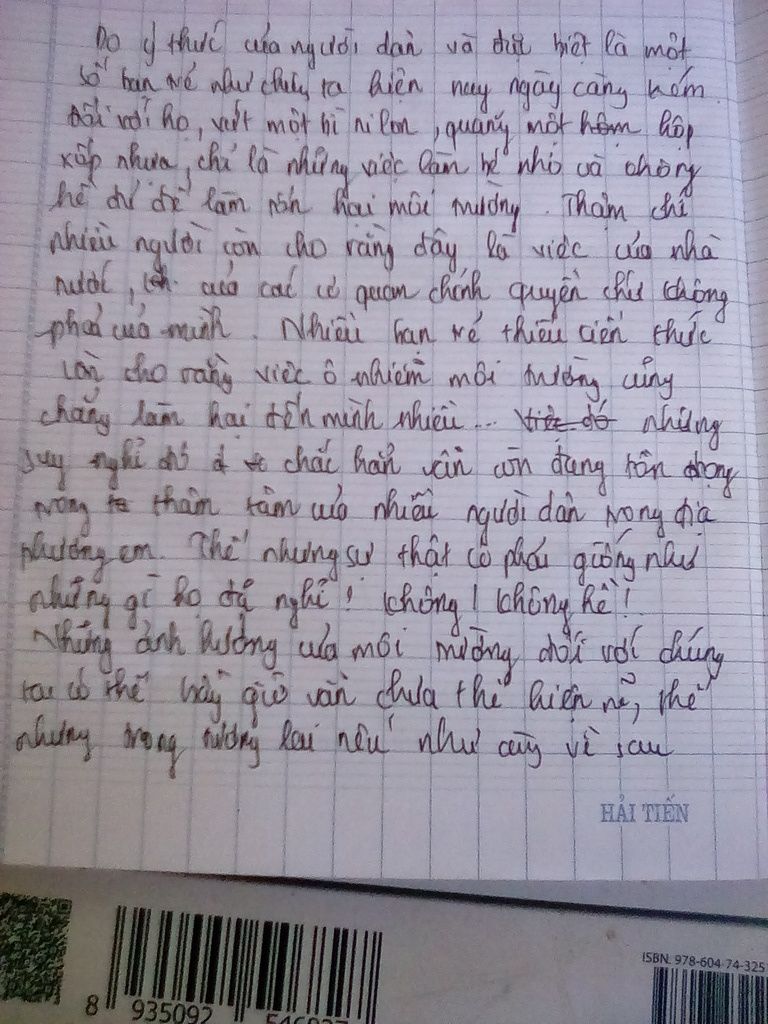 Do ý thức của người dân và đặc biệt là một
số bạn trẻ như chúng ta hiện nay ngày càng kém.
Đối với họ, vứt một bì nilon, quăng một hôm hộp
xốp nhựa, chỉ là những việc làm bé nhỏ và không
hề đủ để làm tổn hại môi trường. Thậm chí
nhiều người còn cho rằng đây là việc của nhà
nước, của các cơ quan chính quyền chứ không
phải của mình. Nhiều bạn trẻ thiếu kiến thức
còn cho rằng việc ô nhiễm môi trường cũng
chẳng làm hại đến mình nhiều... Việc đó những
suy nghĩ đó chắc hẳn vẫn còn đang tồn đọng
trong thâm tâm của nhiều người dân trong địa
phương em. Thế nhưng sự thật có phải giống như
những gì họ đã nghĩ! không! không hề!
Những ảnh hưởng của môi trường đối với chúng
ta có thể bây giờ vẫn chưa thể hiện rõ, thế
nhưng trong tương lai nếu như càng về sau
HẢI TIẾN
ISBN: 978-604-74-325
8 935092